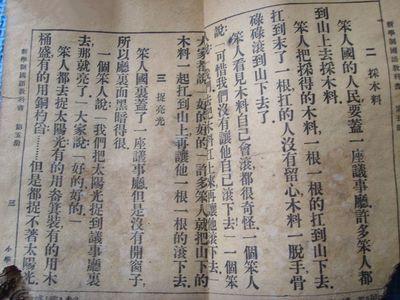 新學制國語教科書 第五冊
二 採木料
笨人國的人民要蓋一座議事廳許多笨人都
到山上去採木料。
笨人把採得的木料一根一根的扛到山下去。
扛到末了一根扛的人沒有留心木料一脫手骨
碌碌滾到山下去了。
笨人看見木料自己會滾都很奇怪。一個笨人
說「可惜我們沒有讓他自己滾下去」一個笨
木料扛上來再讓他一根一根的滾下去」
大家都說「好的好的」許多笨人就把山下的
木料一起扛到山上再讓他一根一根的滾下去。
三 捉亮光
笨人國裏蓋了一座議事廳但是沒有開窗子
所以廳裏面黑暗得很。
一個笨人說「我們把太陽光捉到議事廳裏
去那就亮了」大家說「好的好的」
笨人都去捉太陽光有的用畚箕裝有的用木
桶盛有的用銅杓舀……但是都捉不著太陽光。
新學制國語教科書 第五冊 三 小學